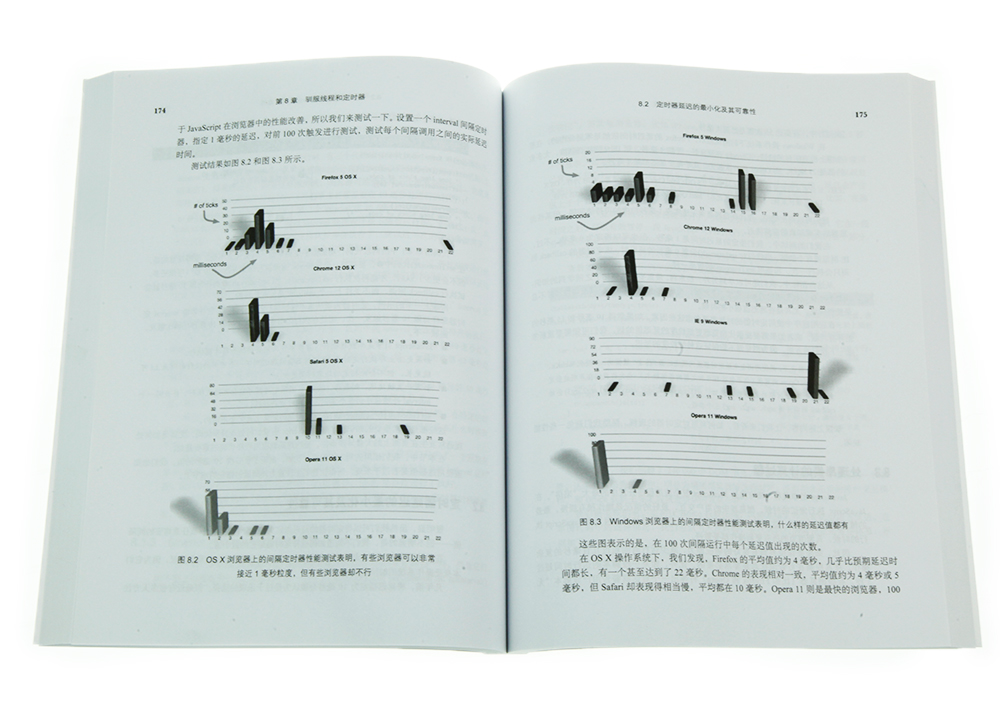 174
第 8 章 驯服线程和定时器
于 JavaScript 在浏览器中的性能改善，所以我们来测试一下。设置一个 interval 间隔定时
器，指定 1 毫秒的延迟，对前 100 次触发进行测试，测试每个间隔调用之间的实际延迟
时间。
测试结果如图 8.2 和图 8.3 所示。
Firefox 5 OS X
# of ticks
1 2 3 4 5 6 7 8 9 10 11 12 13 14 15 16 17 18 19 20 21 22
milliseconds
Chrome 12 OS X
1 2 3 4 5 6 7 8 9 10 11 12 13 14 15 16 17 18 19 20 21 22
Safari 5 OS X
1 2 3 4 5 6 7 8 9 10 11 12 13 14 15 16 17 18 19 20 21 22
Opera 11 OS X
1 2 3 4 5 6 7 8 9 10 11 12 13 14 15 16 17 18 19 20 21 22
图 8.2 OS X 浏览器上的间隔定时器性能测试表明，有些浏览器可以非常
接近 1 毫秒粒度，但有些浏览器却不行
8.2 定时器延迟的最小化及其可靠性
175
Firefox 5 Windows
20
16
12
8
# of ticks
1 2 3 4 5 6 7 8 9 10 11 12 13 14 15 16 17 18 19 20 21 22
milliseconds
Chrome 12 Windows
100
80
60
40
20
0
1 2 3 4 5 6 7 8 9 10 11 12 13 14 15 16 17 18 19 20 21 22
IE 9 Windows
90
72
54
36
18
0
1 2 3 4 5 6 7 8 9 10 11 12 13 14 15 16 17 18 19 20 21 22
Opera 11 Windows
100
1 2 3 4 5 6 7 8 9 10 11 12 13 14 15 16 17 18 19 20 21 22
图 8.3 Windows 浏览器上的间隔定时器性能测试表明，什么样的延迟值都有
这些图表示的是，在 100 次间隔运行中每个延迟值出现的次数。
在 OS X 操作系统下，我们发现，Firefox 的平均值约为 4 毫秒，几乎比预期延迟时
间都长，有一个甚至达到了 22 毫秒。Chrome 的表现相对一致，平均值约为 4 毫秒或 5
毫秒，但 Safari 却表现得相当慢，平均都在 10 毫秒。Opera 11 则是最快的浏览器，100